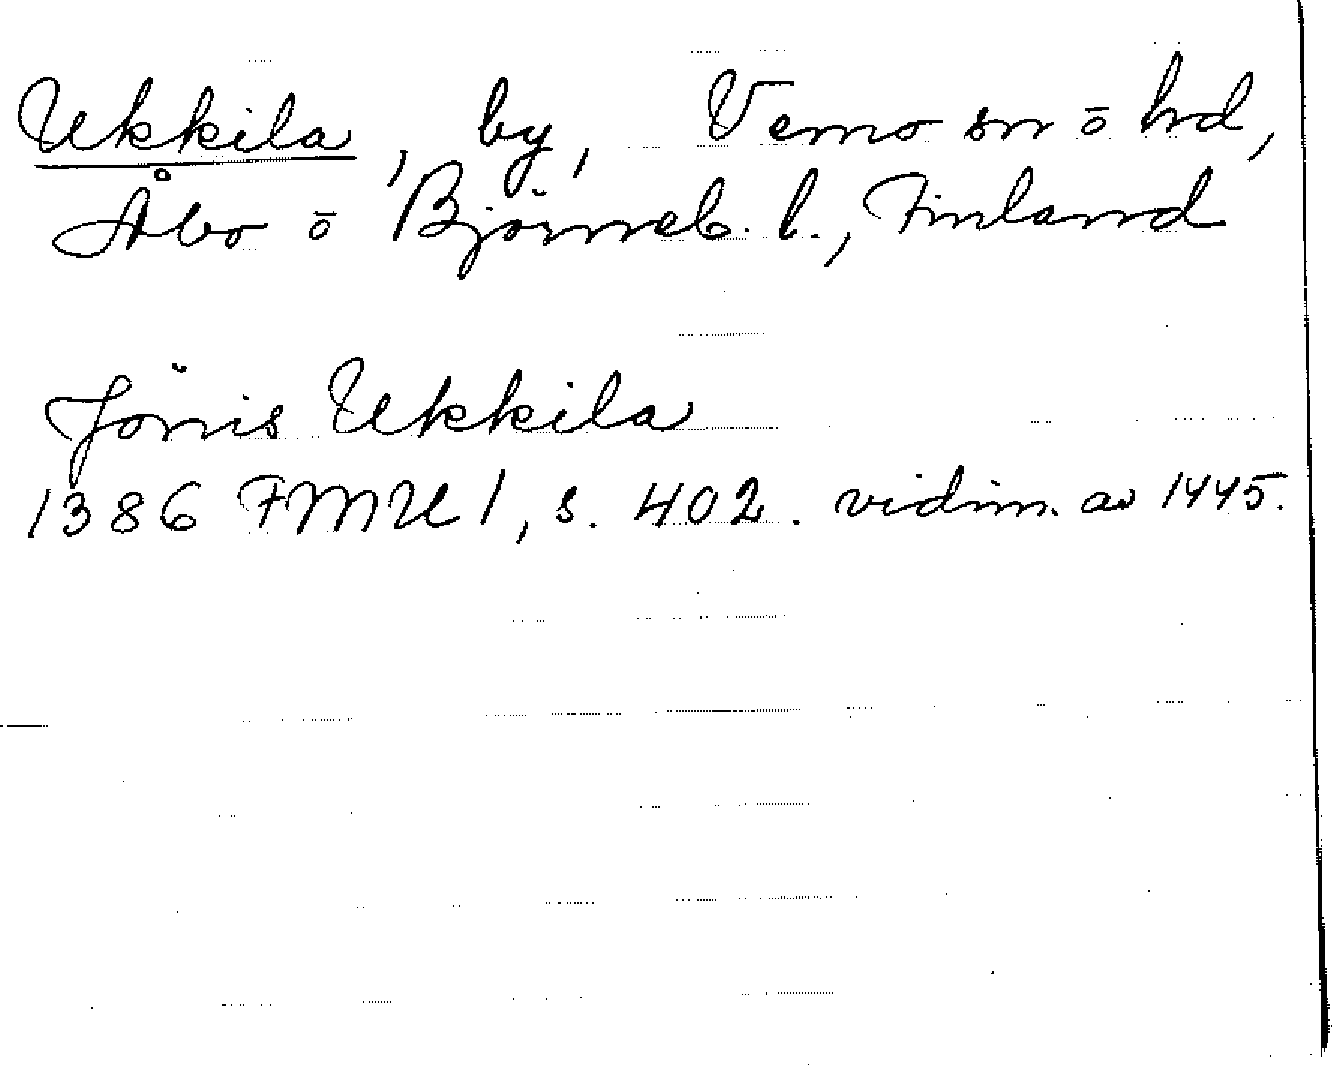 Ukkila, by, Vemo sn ō hd,
Åbo ō Björneb. l., Finland
Jönis Ukkila
1386 FMU 1, s. 402. vidim. av 1445.